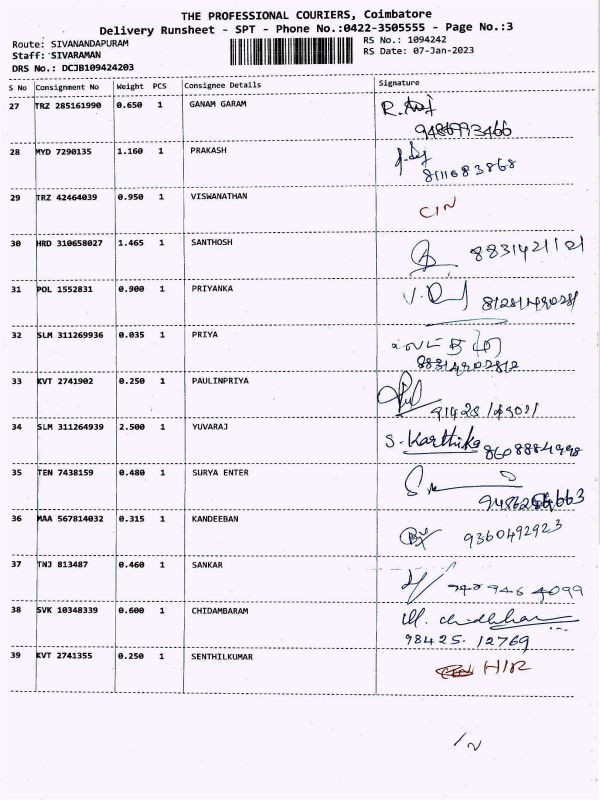 THE PROFESSIONAL COURIERS, Coimbatore
Delivery Runsheet - SPT - Phone No.:0422-3505555 - Page No.:3
Route: SIVANANDAPURAM
RS No.: 1094242
Staff: SIVARAMAN
RS Date: 07-Jan-2023
DRS No.: DCJB109424203
S No Consignment No Weight PCS Consignee Details Signature
27 TRZ 285161990 0.650 1 GANAM GARAM
28 MYD 7290135 1.160 1 PRAKASH
8111683868
29 TRZ 42464039 0.950 1 VISWANATHAN
CIN
30 HRD 310658027 1.465 1 SANTHOSH
31 POL 1552831 0.900 1 PRIYANKA
32 SLM 311269936 0.035 1 PRIYA
33 KVT 2741902 0.250 1 PAULINPRIYA
34 SLM 311264939 2.500 1 YUVARAJ S. Karthika
8608884998
35 TEN 7438159 0.480 1 SURYA ENTER
36 MAA 567814032 0.315 1 KANDEEBAN
9360492923
37 TNJ 813487 0.460 1 SANKAR
38 SVK 10348339 0.600 1 CHIDAMBARAM
98425. 12769
39 KVT 2741355 0.250 1 SENTHILKUMAR